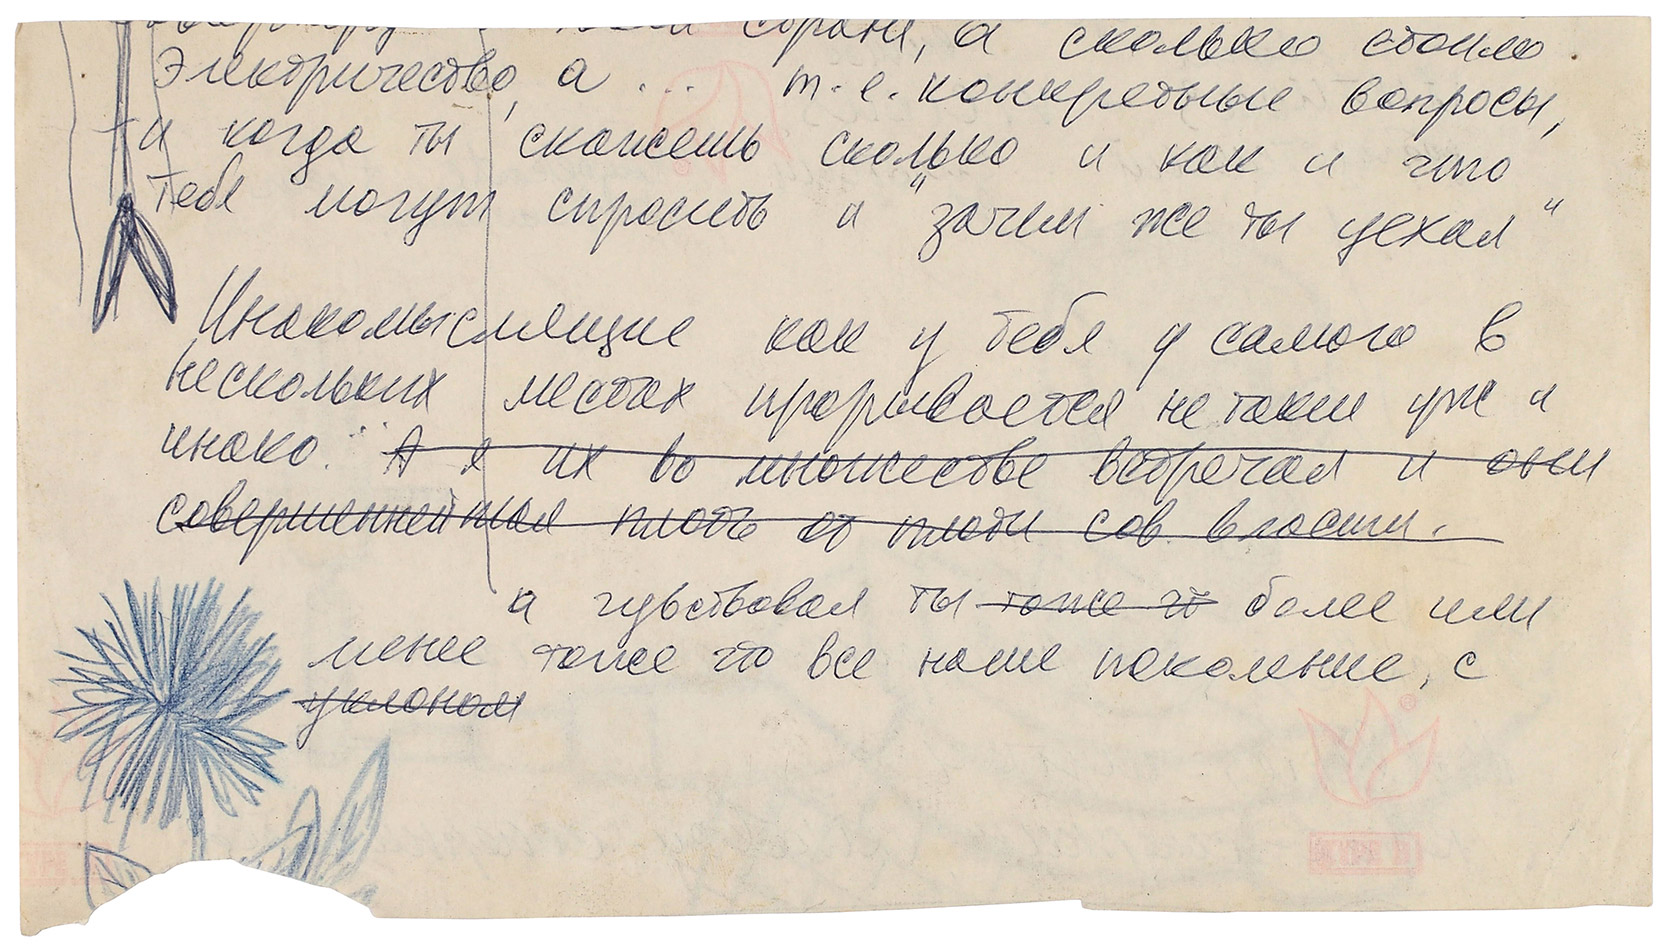 стране, а сколько стоило
электричество, а ... т.е. конкретные вопросы,
и когда ты скажешь сколько и как и что
тебя могут спросить и "зачем же ты уехал"
Инакомыслящие как у тебя у самого в
нескольких местах прорывается не такие уж и
инако. А я их во множестве встречал и они
совершеннейшая плоть от плоти сов. власти.
а чувствовал ты тоже чт более или
менее тоже что все наше поколение, с
уклоном